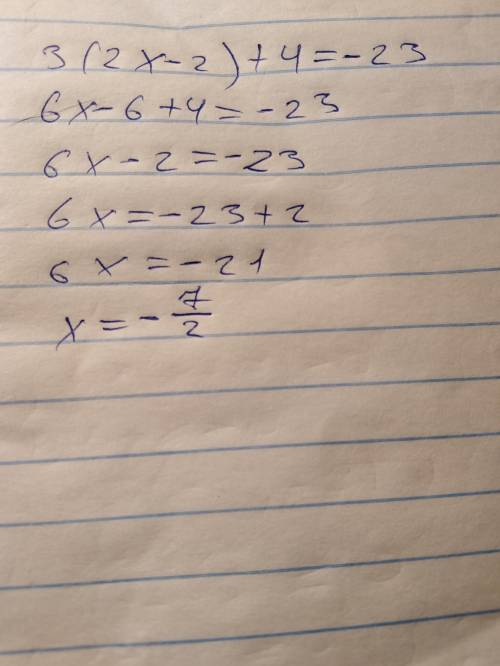 3(2x-2)+4=-23
6x-6+4=-23
6x-2=-23
6x=-23+2
6x=-21
x=-7/2